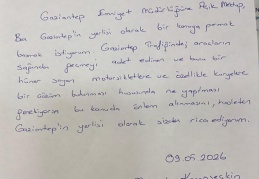 Gaziantep Emniyet Müdürlüğüne Açık Mektup,
Ben Gaziantep'in yerlisi olarak bir konuya parmak
basmak istiyorum. Gaziantep Trafiğindej araçların
sağından geçmeyi adet edinen ve bunu bir
hüner sayan motorsikletlere ve özellikle kuryelere
bir çözüm bulunması hususunda ne yapılması
gerekiyorsa bu konuda önlem alınmasını, halisden
Gaziantep'in yerlisi olarak sizden rica ediyorum.
09.05.2026